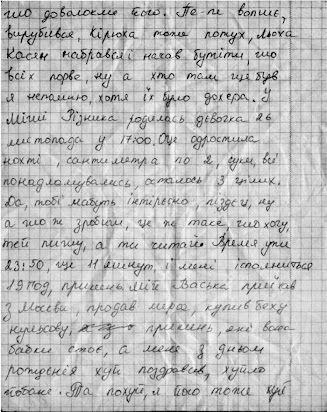 шо доволокме його. Пе-пе вопшє,
вирубився, Кірюха тоже попух, Люха
Касян набрався і начав бутіти, шо
всіх порве, ну а хто там ще був
я непамню, хотя їх було дохера. У
Мігилі Різника родилась девочка 26
листопада у 17:00. Оце одростила
нохті, сантиметра по 2, суки, всі
понадломувались, осталось 3 цілих.
Да, тобі мабуть інтірєсно, піздєц, ну
а шо ж зробіш, це ж таке, шо хочу,
тей пишу, а ти читай. Время ути
23:50, ще 11 минут, і мені ісполниться
19 год, прикинь, мій Васька приїхав
з Москви, продав мерса, купив беху
нульову, прикинь, які вона
бабки стоє, а мене з дньом
рождєнія хуй поздравів, хуйло
йобане. Та похуй, я його тоже хуй